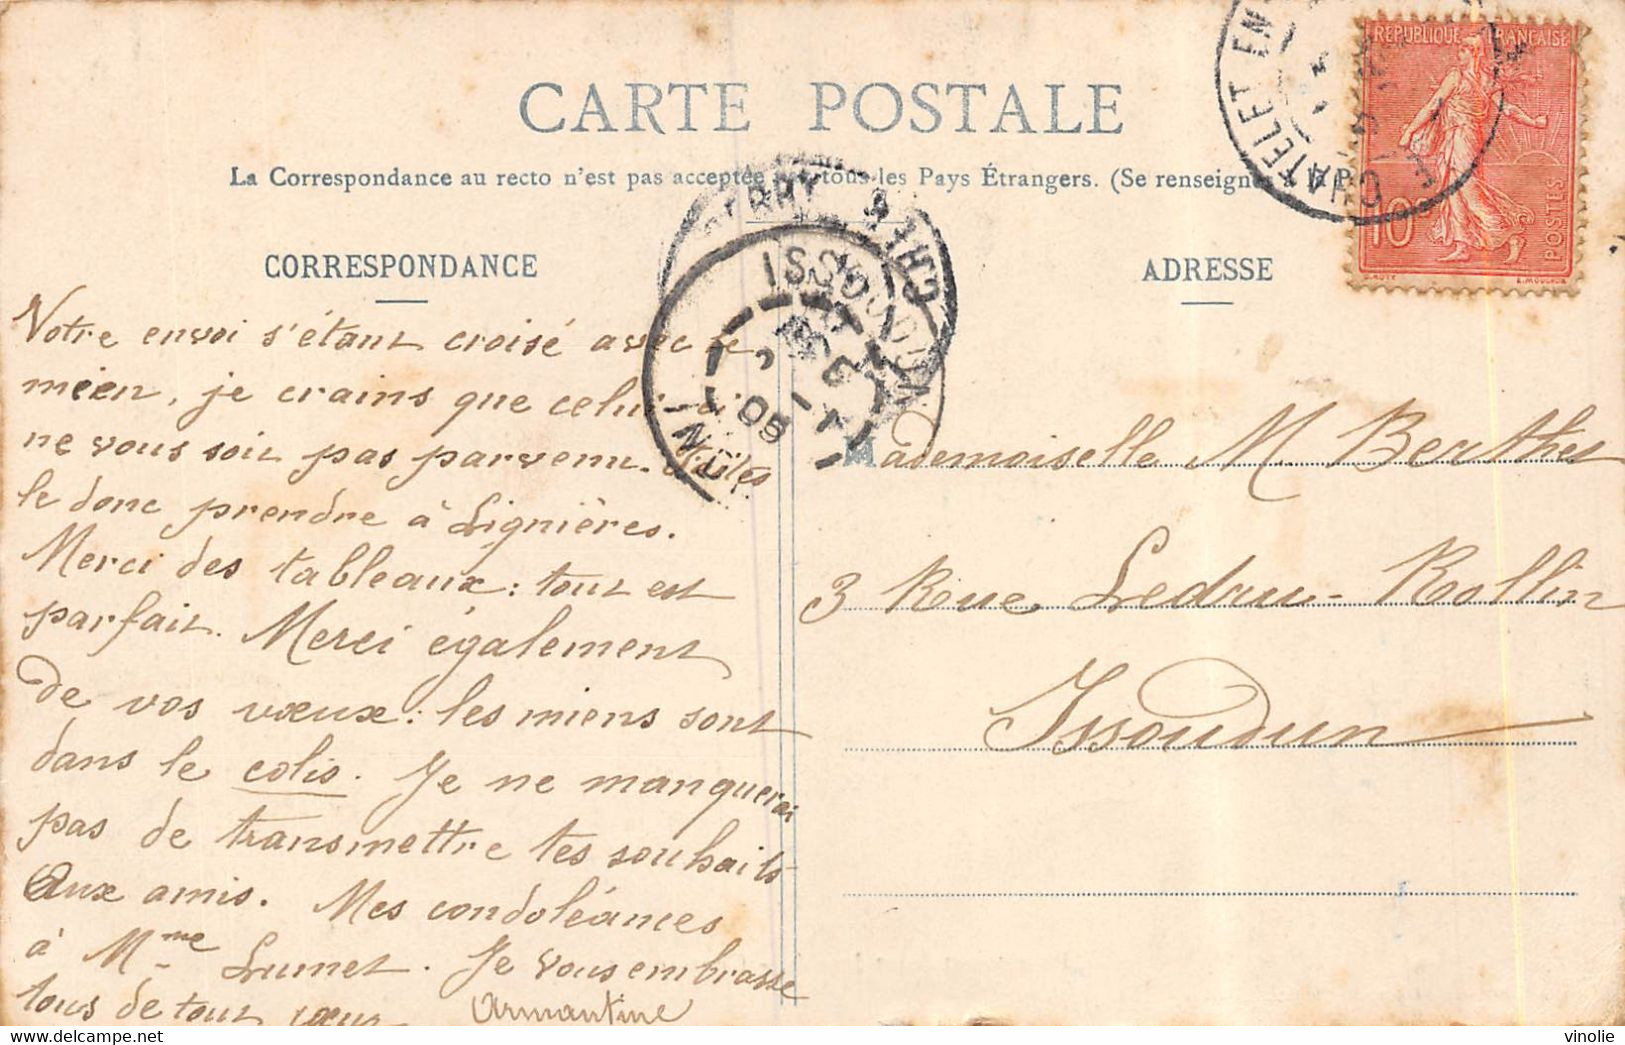 CARTE POSTALE
La Correspondance au recto n'est pas acceptée par tous les Pays Étrangers. (Se renseigner à la P
CORRESPONDANCE
Votre envoi s'étant croisé avec le
mien, je crains que celui-ci
ne vous soit pas parvenu. Faites
le donc prendre à Lignières.
Merci des tableaux : tout est
parfait. Merci également
de vos vœux : les miens sont
dans le colis. Je ne manquerai
pas de transmettre tes souhaits
aux amis. Mes condoléances
à Mme Lumet. Je vous embrasse
tous de tout cœur
Armantine
ADRESSE
Mademoiselle M. Berthet
3 Rue Ledru-Rollin
Issoudun
REPUBLIQUE FRANCAISE
10
POSTES
E. MOUCHON
CHATELET EN
ISSOUDUN
INDRE
05
CHER
vinolie